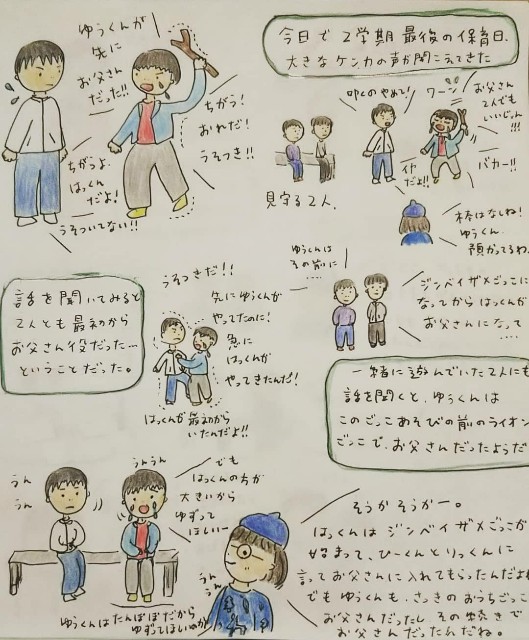 今日で2学期最後の保育日、
大きなケンカの声が聞こえてきた
ゆうくんが
先に
お父さん
だった!!
ちがう!
おれだ!
うそつき!!
ちがうよ.
はっくん
だよ!
うそついてない!!
叩くのやめて!
ワーン
お父さん
2人でも
いいじゃん
!!!
イヤ
だよ!!
バカー!!
見守る2人.
棒はなしね!
ゆうくん.
預かってるわ.
話を聞いてみると
2人とも最初から
お父さん役だった…
ということだった。
うそつきだ!!
先にゆうくんが
やってたのに!
急に
はっくんが
やってきたんだ!
はっくんが最初から
いたんだよ!!
ゆうくんは
その前に
……
ジンベイザメごっこに
なってからはっくんが
お父さんになって
……
一緒に遊んでいた2人にも
話を聞くと、ゆうくんは
このごっこあそびの前のライオン
ごっこで、お父さんだったようだ
うん
うん
うんうん
でも
はっくんのちが
大きいから
ゆずって
ほしいー
ゆうくんはたんぽぽだから
ゆずてほしいのか
うん
うん
そうかそうかー。
はっくんはジンベイザメごっこが
始まって、ひーくんとりっくんに
言ってお父さんに入れてもらったんだよね
でもゆうくんも、さっきのおうちごっこ
お父さんだったし、その続きで
お父さんだったんだね。